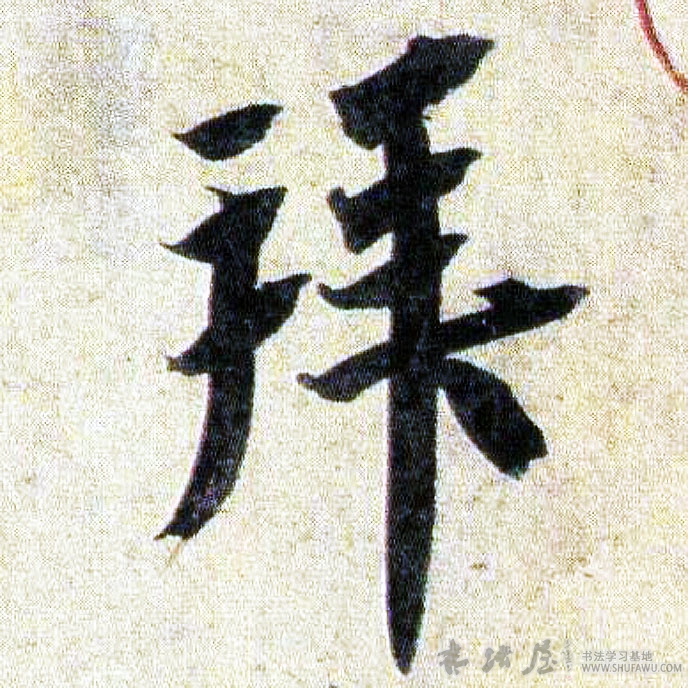 拜
书法屋 书法学习基地
WWW.SHUFAWU.COM